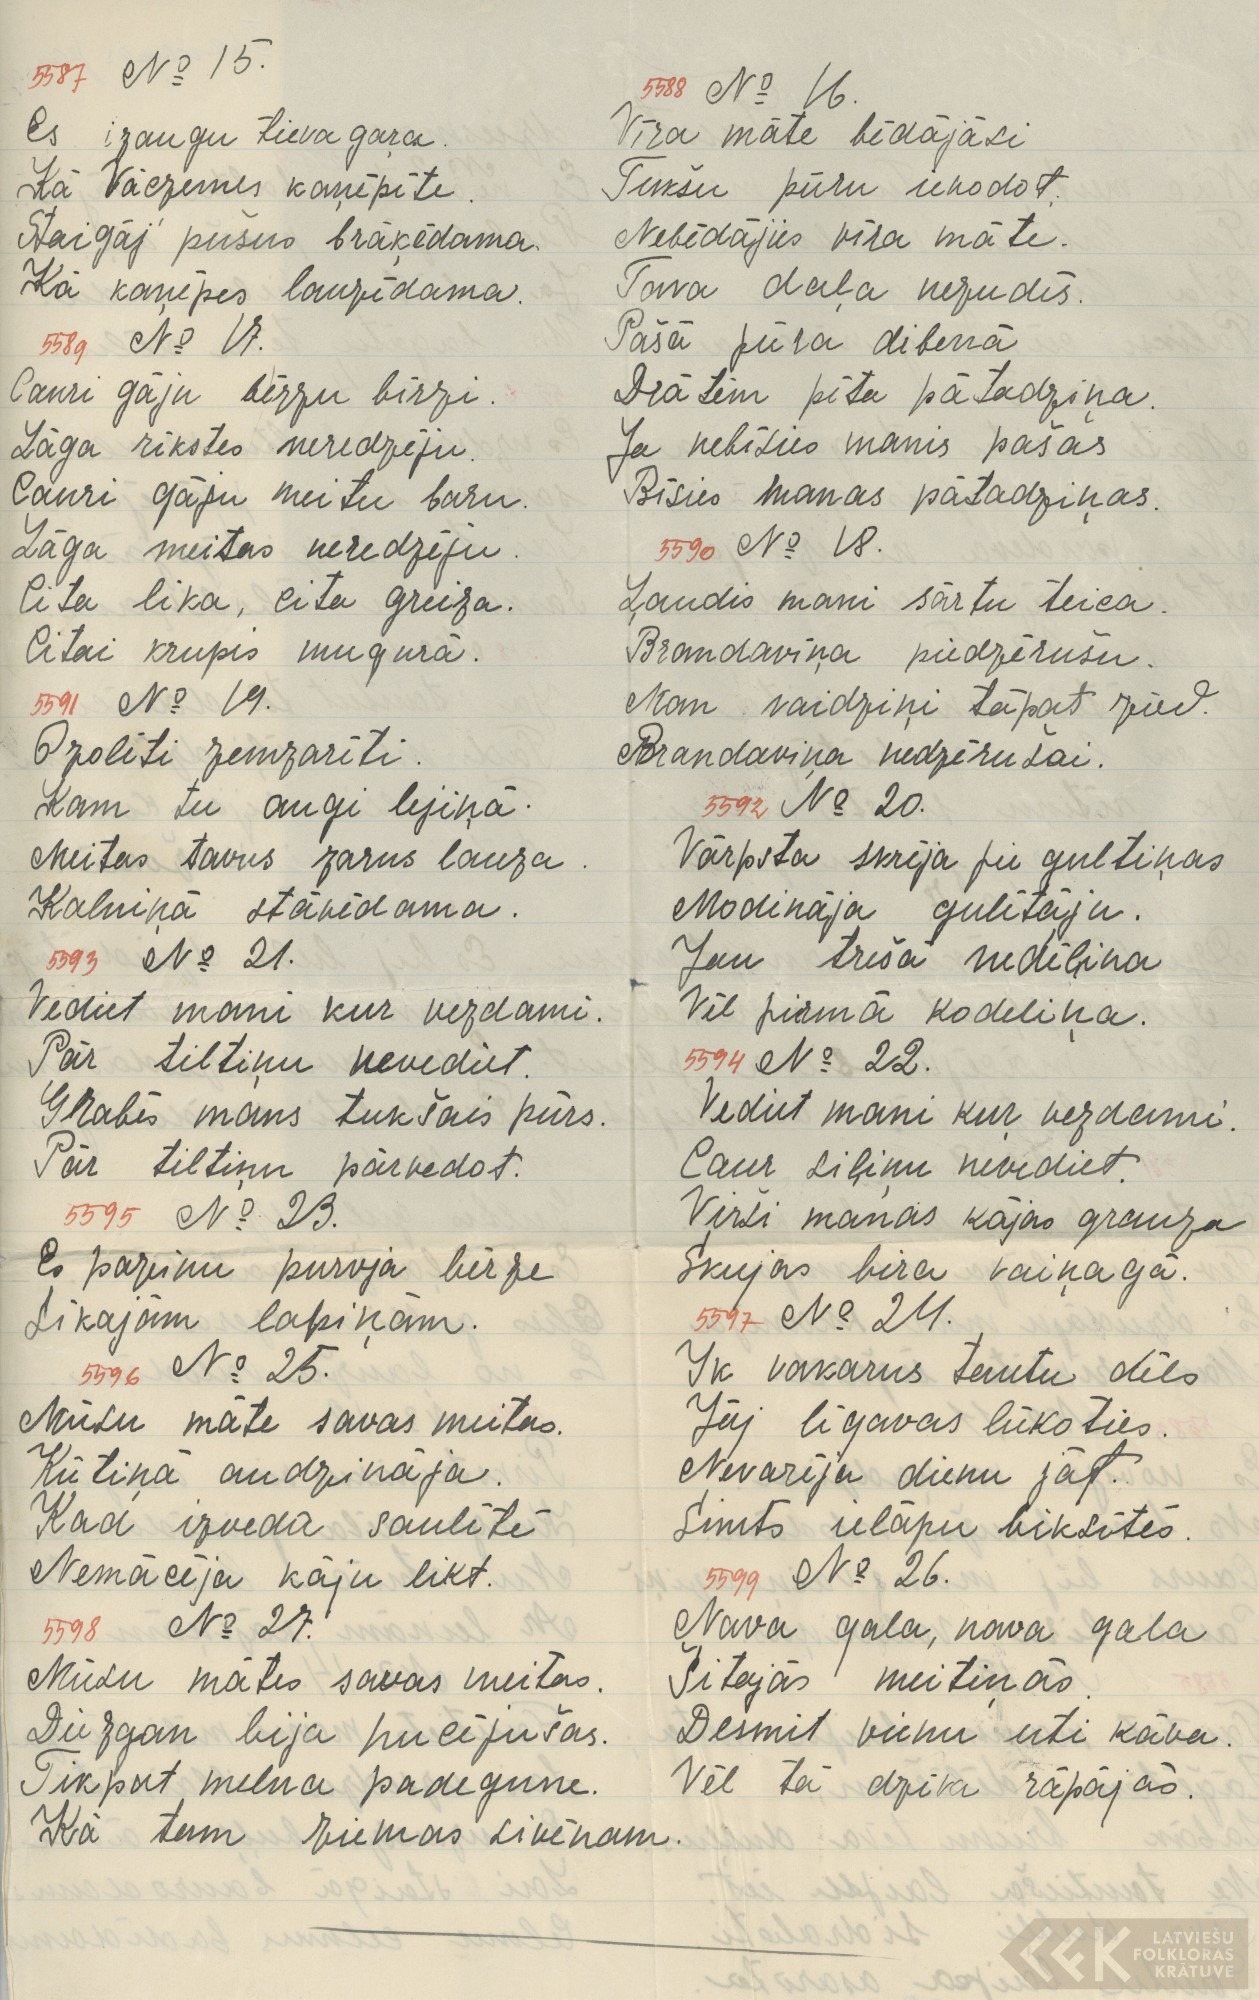 5587 № 15.
Es izaugu tieva gara.
Kā Vāczemes kaņēpīte.
Staigāj' pušus brāķēdama.
Kā kaņēpes lauzīdama.
5589 № 17.
Cauri gāju bērzu birzi.
Lāga rīkstes neredzēju.
Cauri gāju meitu baru.
Lāga meitas neredzēju.
Cita lika, cita greiza.
Citai krupis mugurā.
5591 № 19.
Ozolīti zemzarīti.
Kam tu augi lejiņā.
Meitas tavus zarus lauza.
Kalniņā stāvēdama.
5593 № 21.
Vediet mani kur vezdami.
Pār tiltiņu nevediet.
Grabēs mans tukšais pūrs.
Pār tiltiņu pārvedot.
5595 № 23.
Es pazinu purvja bērze
Sīkajām lapiņām.
5596 № 25.
Mūsu māte savas meitas.
Kūtiņā audzināja.
Kad izveda saulītē
Nemācēja kāju likt.
5598 № 27.
Mūsu mātes savas meitas.
Diezgan bija pucējušas.
Tikpat melna padegune.
Kā tam ziemas sivēnam.
5588 № 16.
Vīra māte bēdājāsi
Tukšu pūru iekodot.
Nebēdājies vīra māte.
Tava daļa nezudīs.
Pašā pūra dibenā
Drātēm pīta pātadziņa.
Ja nebīsies manis pašas
Bīsies manas pātadziņas.
5590 № 18.
Ļaudis mani sārtu teica.
Brandaviņa piedzērušu.
Man vaidziņi tāpat zied.
Brandaviņa nedzērušai.
5592 № 20.
Vārpsta skrēja pie gultiņas
Modināja gulētāju.
Jau trešā nedēļiņa
Vēl pirmā kodeliņa.
5594 № 22.
Vediet mani kur vezdami.
Caur siliņu nevediet.
Virši manas kājas grauza
Skujas bira vaiņagā.
5597 № 24.
Ik vakarus tautu dēls
Jāj līgavas lūkoties.
Nevarēja dienu jāt.
Simts ielāpu biksītēs.
5599 № 26.
Nava gala, nava gala
Šitajās meitiņās.
Desmit vienu uti kāva.
Vēl tā dzīva rāpājās.
LATVIEŠU
FOLKLORAS
KRĀTUVE